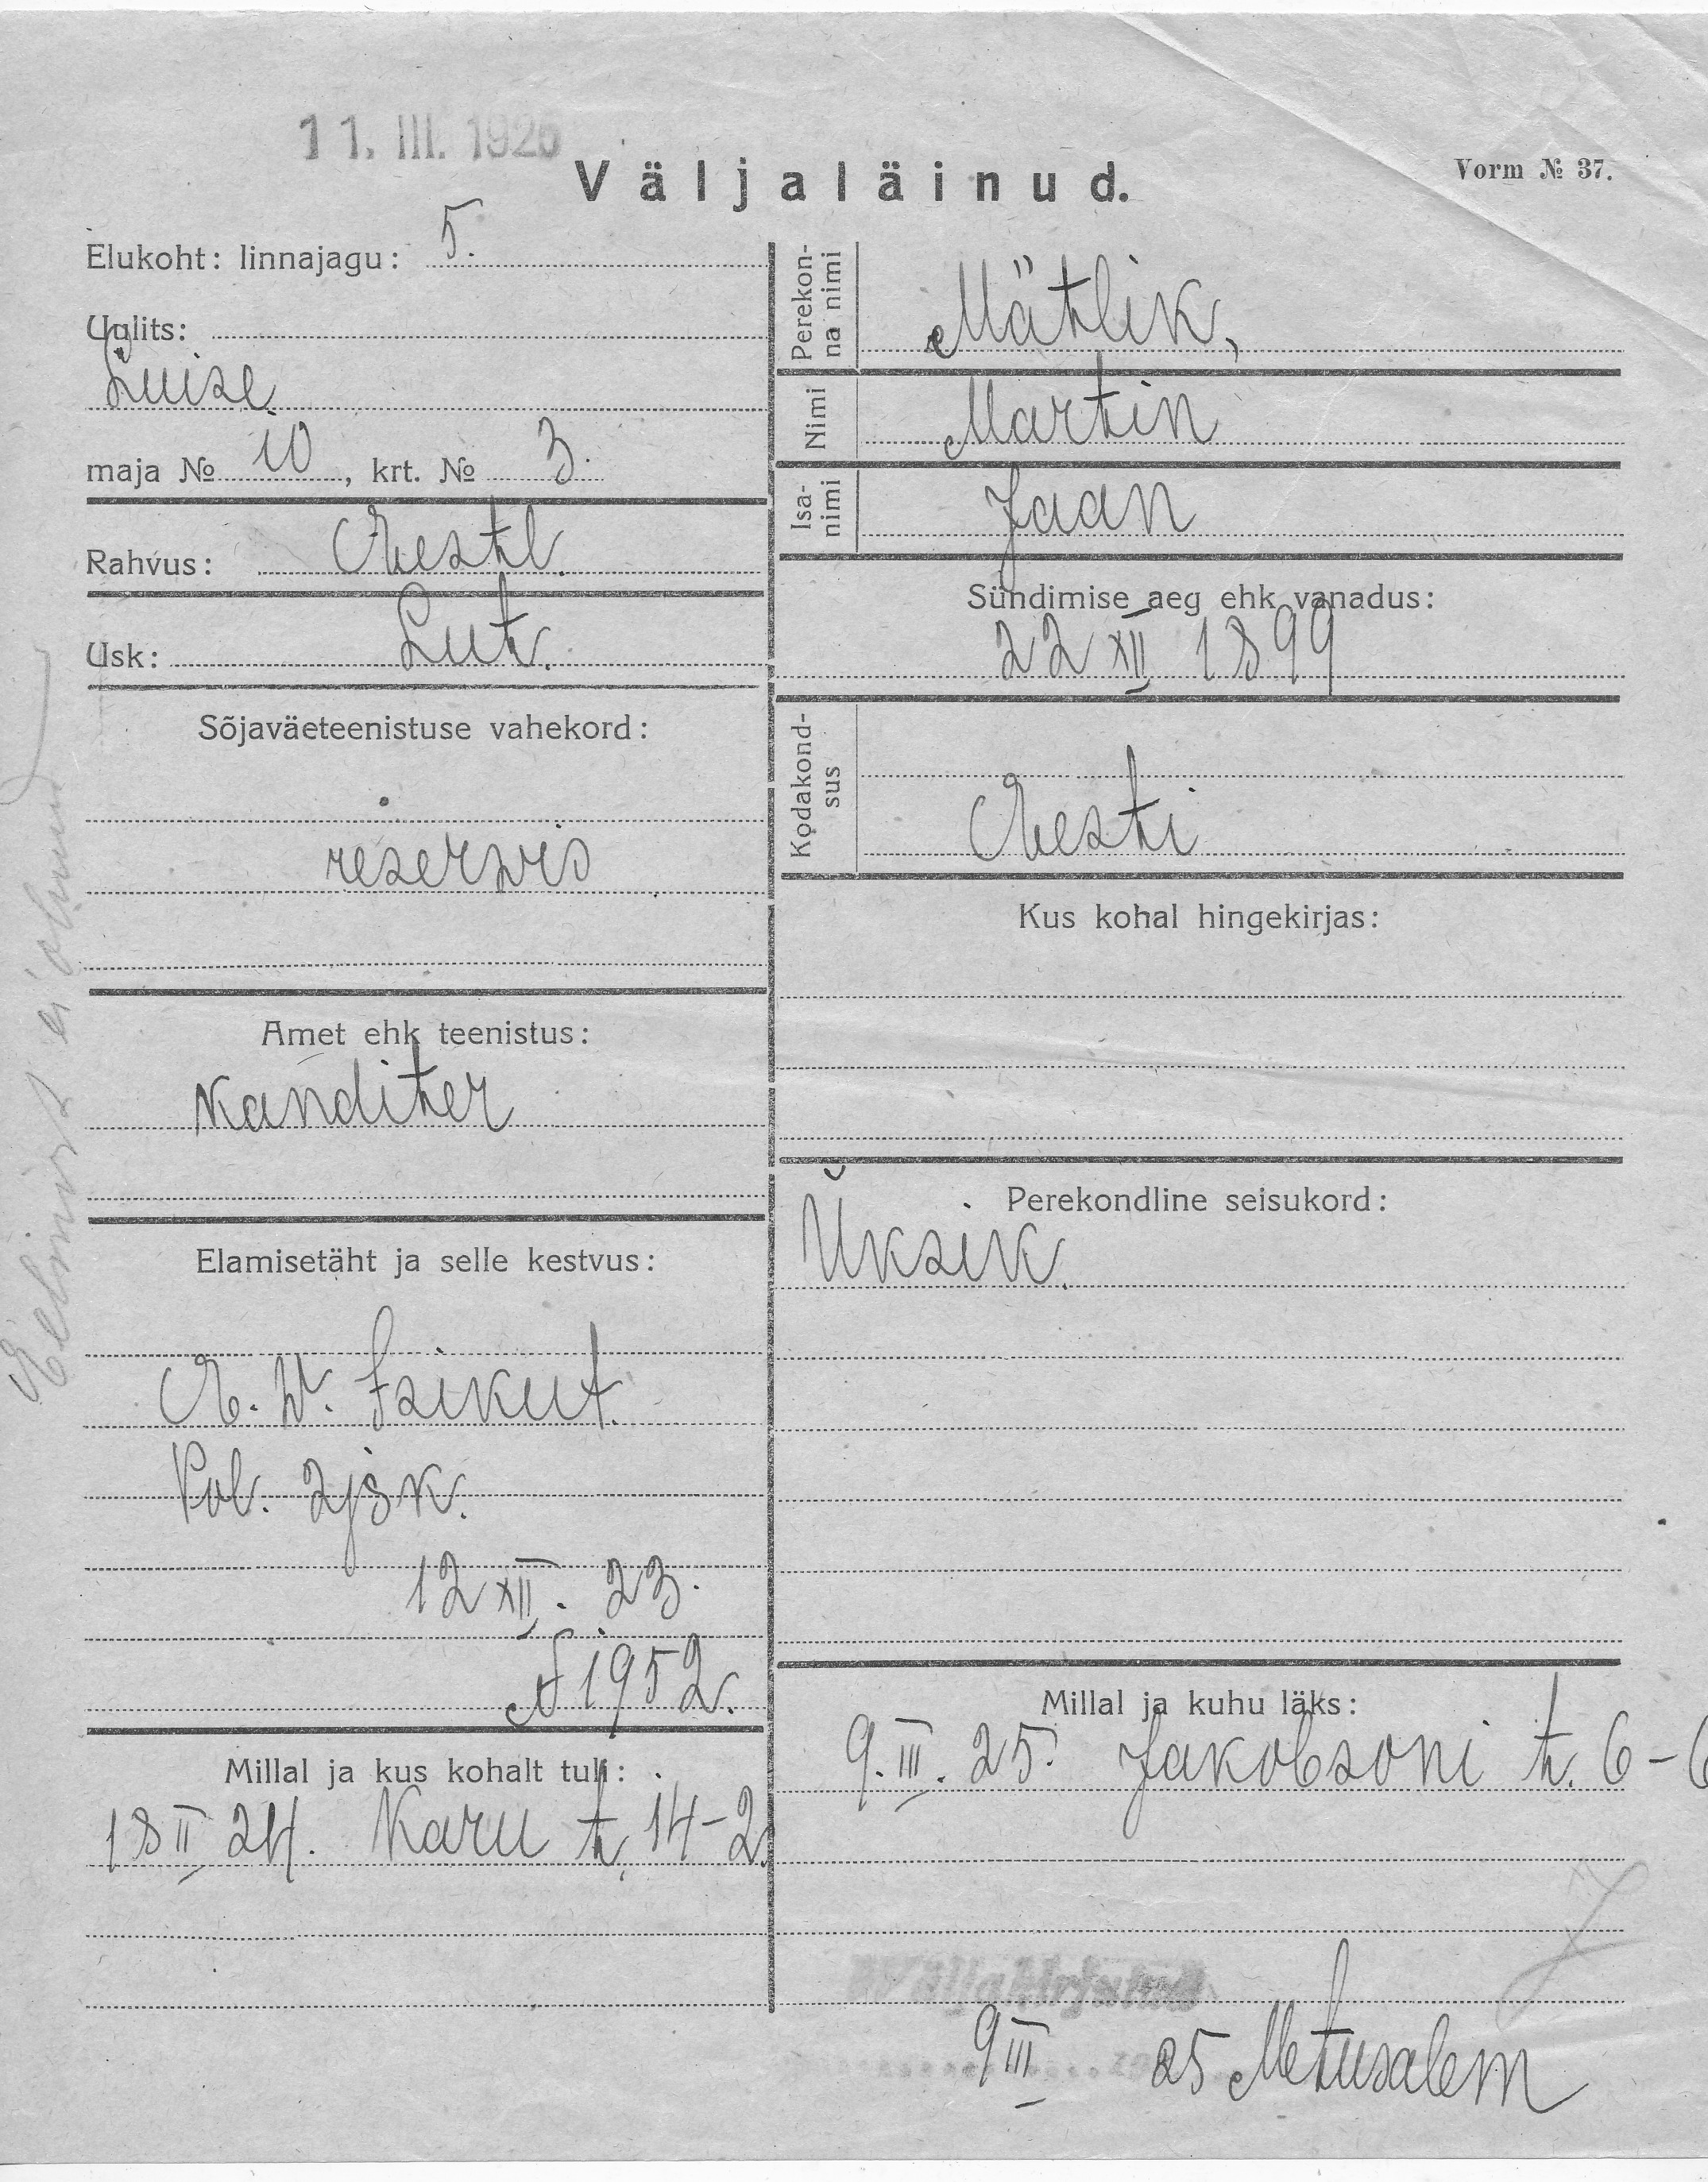 11. III. 1925
Väljaläinud.
Vorm № 37.
Elukoht: linnajagu: 5.
Uulits:
Luise
maja № 10, krt. № 3.
Rahvus: Eestl.
Usk: Lut.
Sõjaväeteenistuse vahekord:
reservis
Amet ehk teenistus:
Kanditer
Elamisetäht ja selle kestvus:
E. W. Isikut.
Pol. 2 jsk.
12 XII. 23.
№ 1952.
Millal ja kus kohalt tuli:
18 II 24. Karu t. 14-2.
Perekonna nimi
Mätlik,
Nimi
Martin
Isanimi
Jaan
Sündimise aeg ehk vanadus:
22 XII 1899
Kodakondsus
Eesti
Kus kohal hingekirjas:
Perekondline seisukord:
Üksik.
Millal ja kuhu läks:
9. III. 25. Jakobsoni t. 6-6
Väljakirjutud
9 III 25 Metusalem
ei olnud